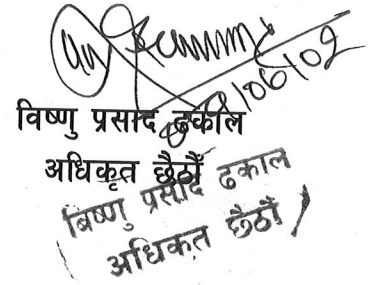 विष्णु प्रसाद ढकाल
अधिकृत छैठौँ
बिष्णु प्रसाद ढकाल
अधिकृत छैठौँ